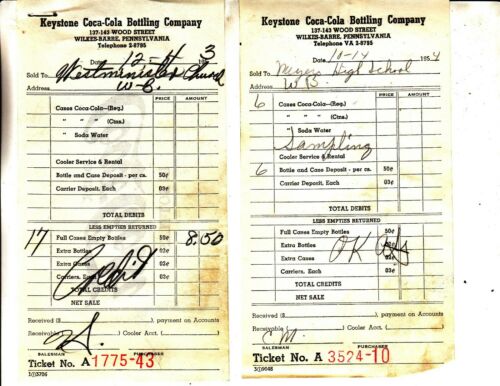 Keystone Coca-Cola Bottling Company
137-143 WOOD STREET
WILKES-BARRE, PENNSYLVANIA
Telephone 2-8795
Date 12-4 195 3
Sold To Westminister Church
Address W-B.
PRICE AMOUNT
Cases Coca-Cola—(Reg.)
" " " (Ctns.)
" Soda Water
Cooler Service & Rental
Bottle and Case Deposit - per cs. 50¢
Carrier Deposit, Each 03¢
TOTAL DEBITS
LESS EMPTIES RETURNED
17 Full Cases Empty Bottles 50¢ 8.50
Extra Bottles 02¢
Extra Cases 02¢
Carriers, Each 03¢
TOTAL CREDITS
NET SALE
Received ($ ), payment on Accounts
Receivable ( ) Cooler Acct. ( )
SALESMAN PURCHASER
Ticket No. A 1775-43
Keystone Coca-Cola Bottling Company
137-143 WOOD STREET
WILKES-BARRE, PENNSYLVANIA
Telephone VA 2-8795
Date 10-14 195 4
Sold To Meyers High School
Address W B
PRICE AMOUNT
6 Cases Coca-Cola—(Reg.)
" " " (Ctns.)
" Soda Water
Sampling
Cooler Service & Rental
6 Bottle and Case Deposit - per cs. 50¢
Carrier Deposit, Each 03¢
TOTAL DEBITS
LESS EMPTIES RETURNED
Full Cases Empty Bottles 50¢
Extra Bottles 02¢
OK
Extra Cases
Carriers, Each 03¢
TOTAL CREDITS
NET SALE
Received ($ ), payment on Accounts
Receivable ( ) Cooler Acct. ( )
C M
SALESMAN PURCHASER
Ticket No. A 3524-10